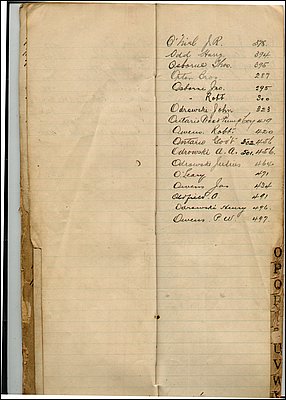 O'Neil J. R. 378.
Odd Harry 394
Osborne Tho. 395
Orton Croz 287
Osborne Jao. 295
" Robt 300
Odrowski John 323
Ontario Wood Pump Coy 419
Owens. Robt. 420
Ontario Gov't 302 456
Odrowski A. A. 501. 456.
Odrowski Julius 464.
O'Leary 471
Owens Jas 434
Oldfield A. 491
Odrowski Henry 496.
Owens P. W. 497.
O
P
Q
R
T
U
V
W